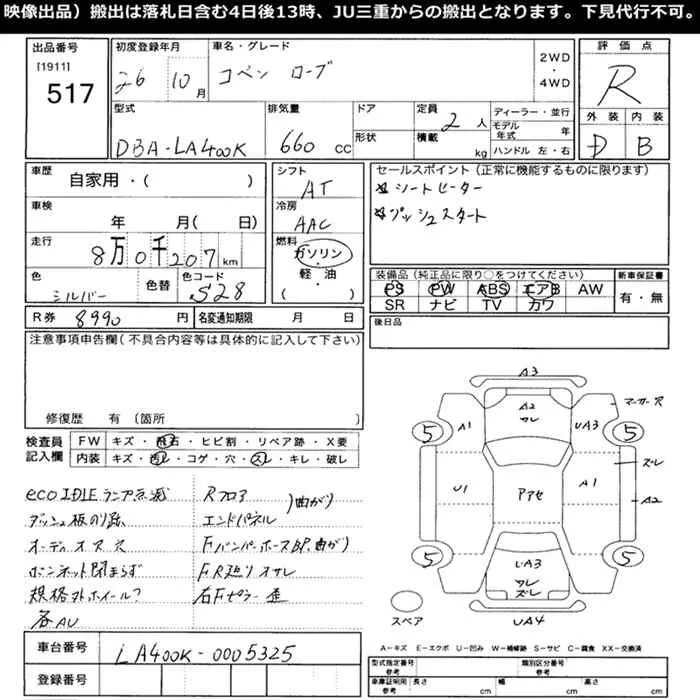 映像出品）搬出は落札日含む4日後13時、JU三重からの搬出となります。下見代行不可。
出品番号 初度登録年月 車名・グレード 評価点
[1911] 2WD
517 26 10月 コペン ローブ ・ R
4WD
型式 排気量 ドア 定員 ディーラー・並行 外装 内装
2人 モデル年式 年
DBA-LA400K 660cc 形状 積載 kg ハンドル 左・右 D B
車歴 シフト セールスポイント（正常に機能するものに限ります）
自家用・（ ） AT ☆シートヒーター
車検 冷房 ☆プッシュスタート
年 月（ 日） AAC
走行 燃料
8万0千207km ガソリン
色 色替 色コード ・ 装備品（純正品に限り○をつけてください） 新車保証書
シルバー S28 軽油 PS PW ABS エアB AW 有・無
（ ） SR ナビ TV カワ
R券 8990円 名変通知期限 月 日 後日品
注意事項申告欄（不具合内容等は具体的に記入して下さい）
修復歴 有（箇所
検査員 FW キズ・飛石・ヒビ割・リペア跡・X要
記入欄 内装 キズ・汚レ・コゲ・穴・スレ・キレ・破レ
eco IDLEランプ点滅 Rフロア
曲がり
ダッシュ板のり跡 エンドパネル
オーディオスス穴 Fバンパーホース BP,曲がり
ボンネット閉まらず F,R廻りオサレ
規格外ホイール? 右Fピラー歪
各AU
車台番号 LA400K-0005325
登録番号
A3
A2
スレ
マーカー穴
5 A1 UA3 5
スレ
U1 アアセ A1
A2
5 UA3 5
スレ
ズレ
スペア UA4
A－キズ E－エクボ U－凹み W－補修跡 S－サビ C－腐食 XX－交換済
型式指定番号 参考 類別区分番号 参考
車庫証明用 参考 長さ cm 幅 cm 高さ cm